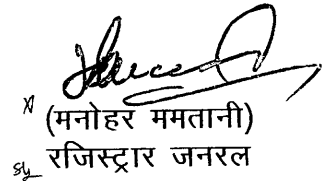 (मनोहर ममतानी)
रजिस्ट्रार जनरल